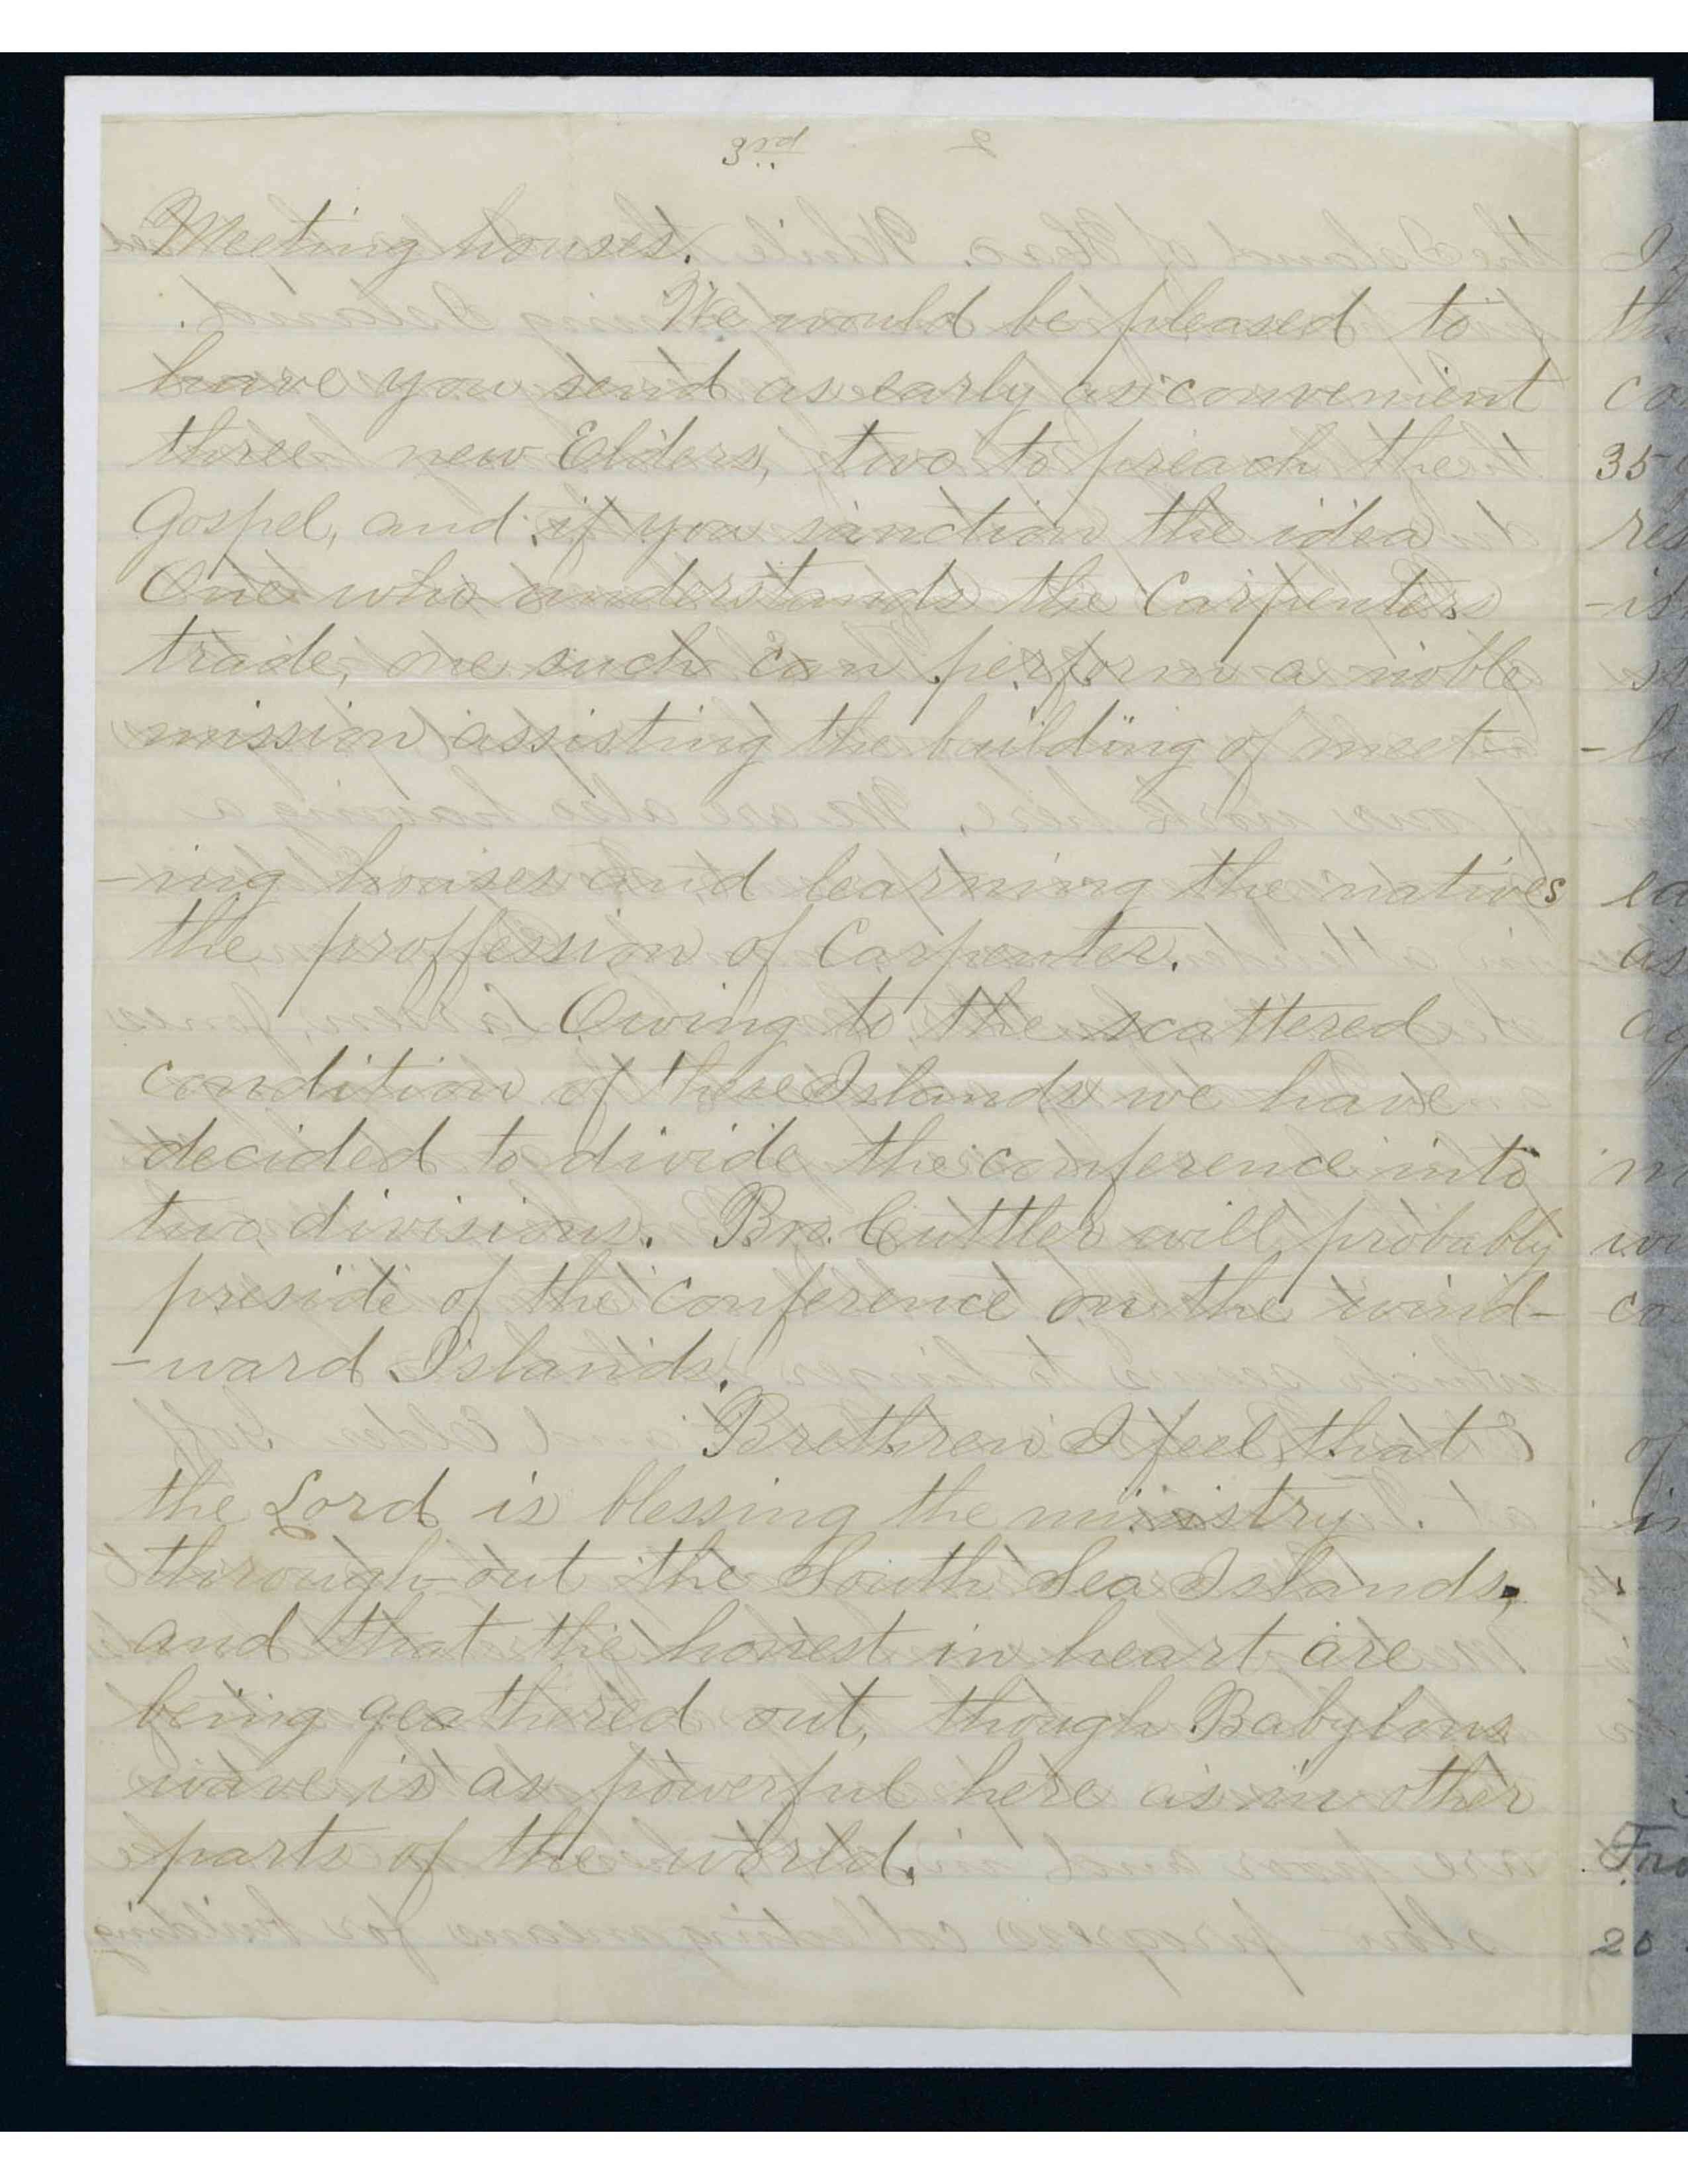 3rd
Meeting houses.
We would be pleased to
have you send as early as convenient
three new Elders, two to preach the
Gospel, and if you sanction the idea
One who understands the Carpenters
trade, one such can perform a noble
mission assisting the building of meet-
-ing houses and learning the natives
the proffession of Carpenter.
Owing to the scattered
condition of these Islands we have
decided to divide the conference into
two divisions. Bro. Cuttler will probably
preside of the conference on the wind-
-ward Islands.
Brethren I feel that
the Lord is blessing the ministry
through-out the South Sea Islands,
and that the honest in heart are
being geathered out, though Babylons
wave is as powerful here as in other
parts of the world.